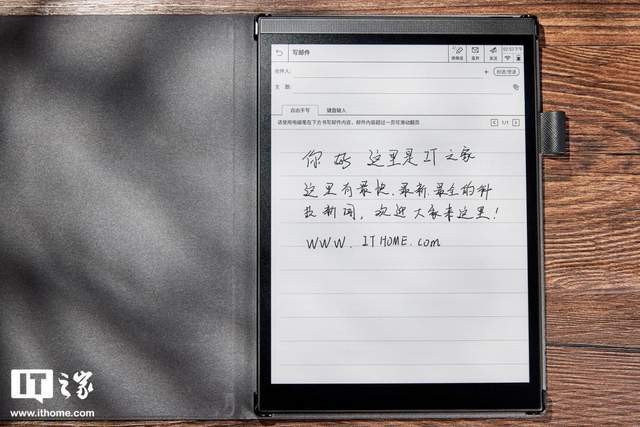 写邮件
02:02下午
发送
收件人:
+ 抄送/密送
主 题:
自由手写 键盘输入
请使用电磁笔在下方书写邮件内容，邮件内容超过一页可滑动翻页 < 1/1 >
你好 这里是IT之家
这里有最快、最新、最全的科
技新闻，欢迎大家来这里！
WWW.ITHOME.com
IT之家
www.ithome.com